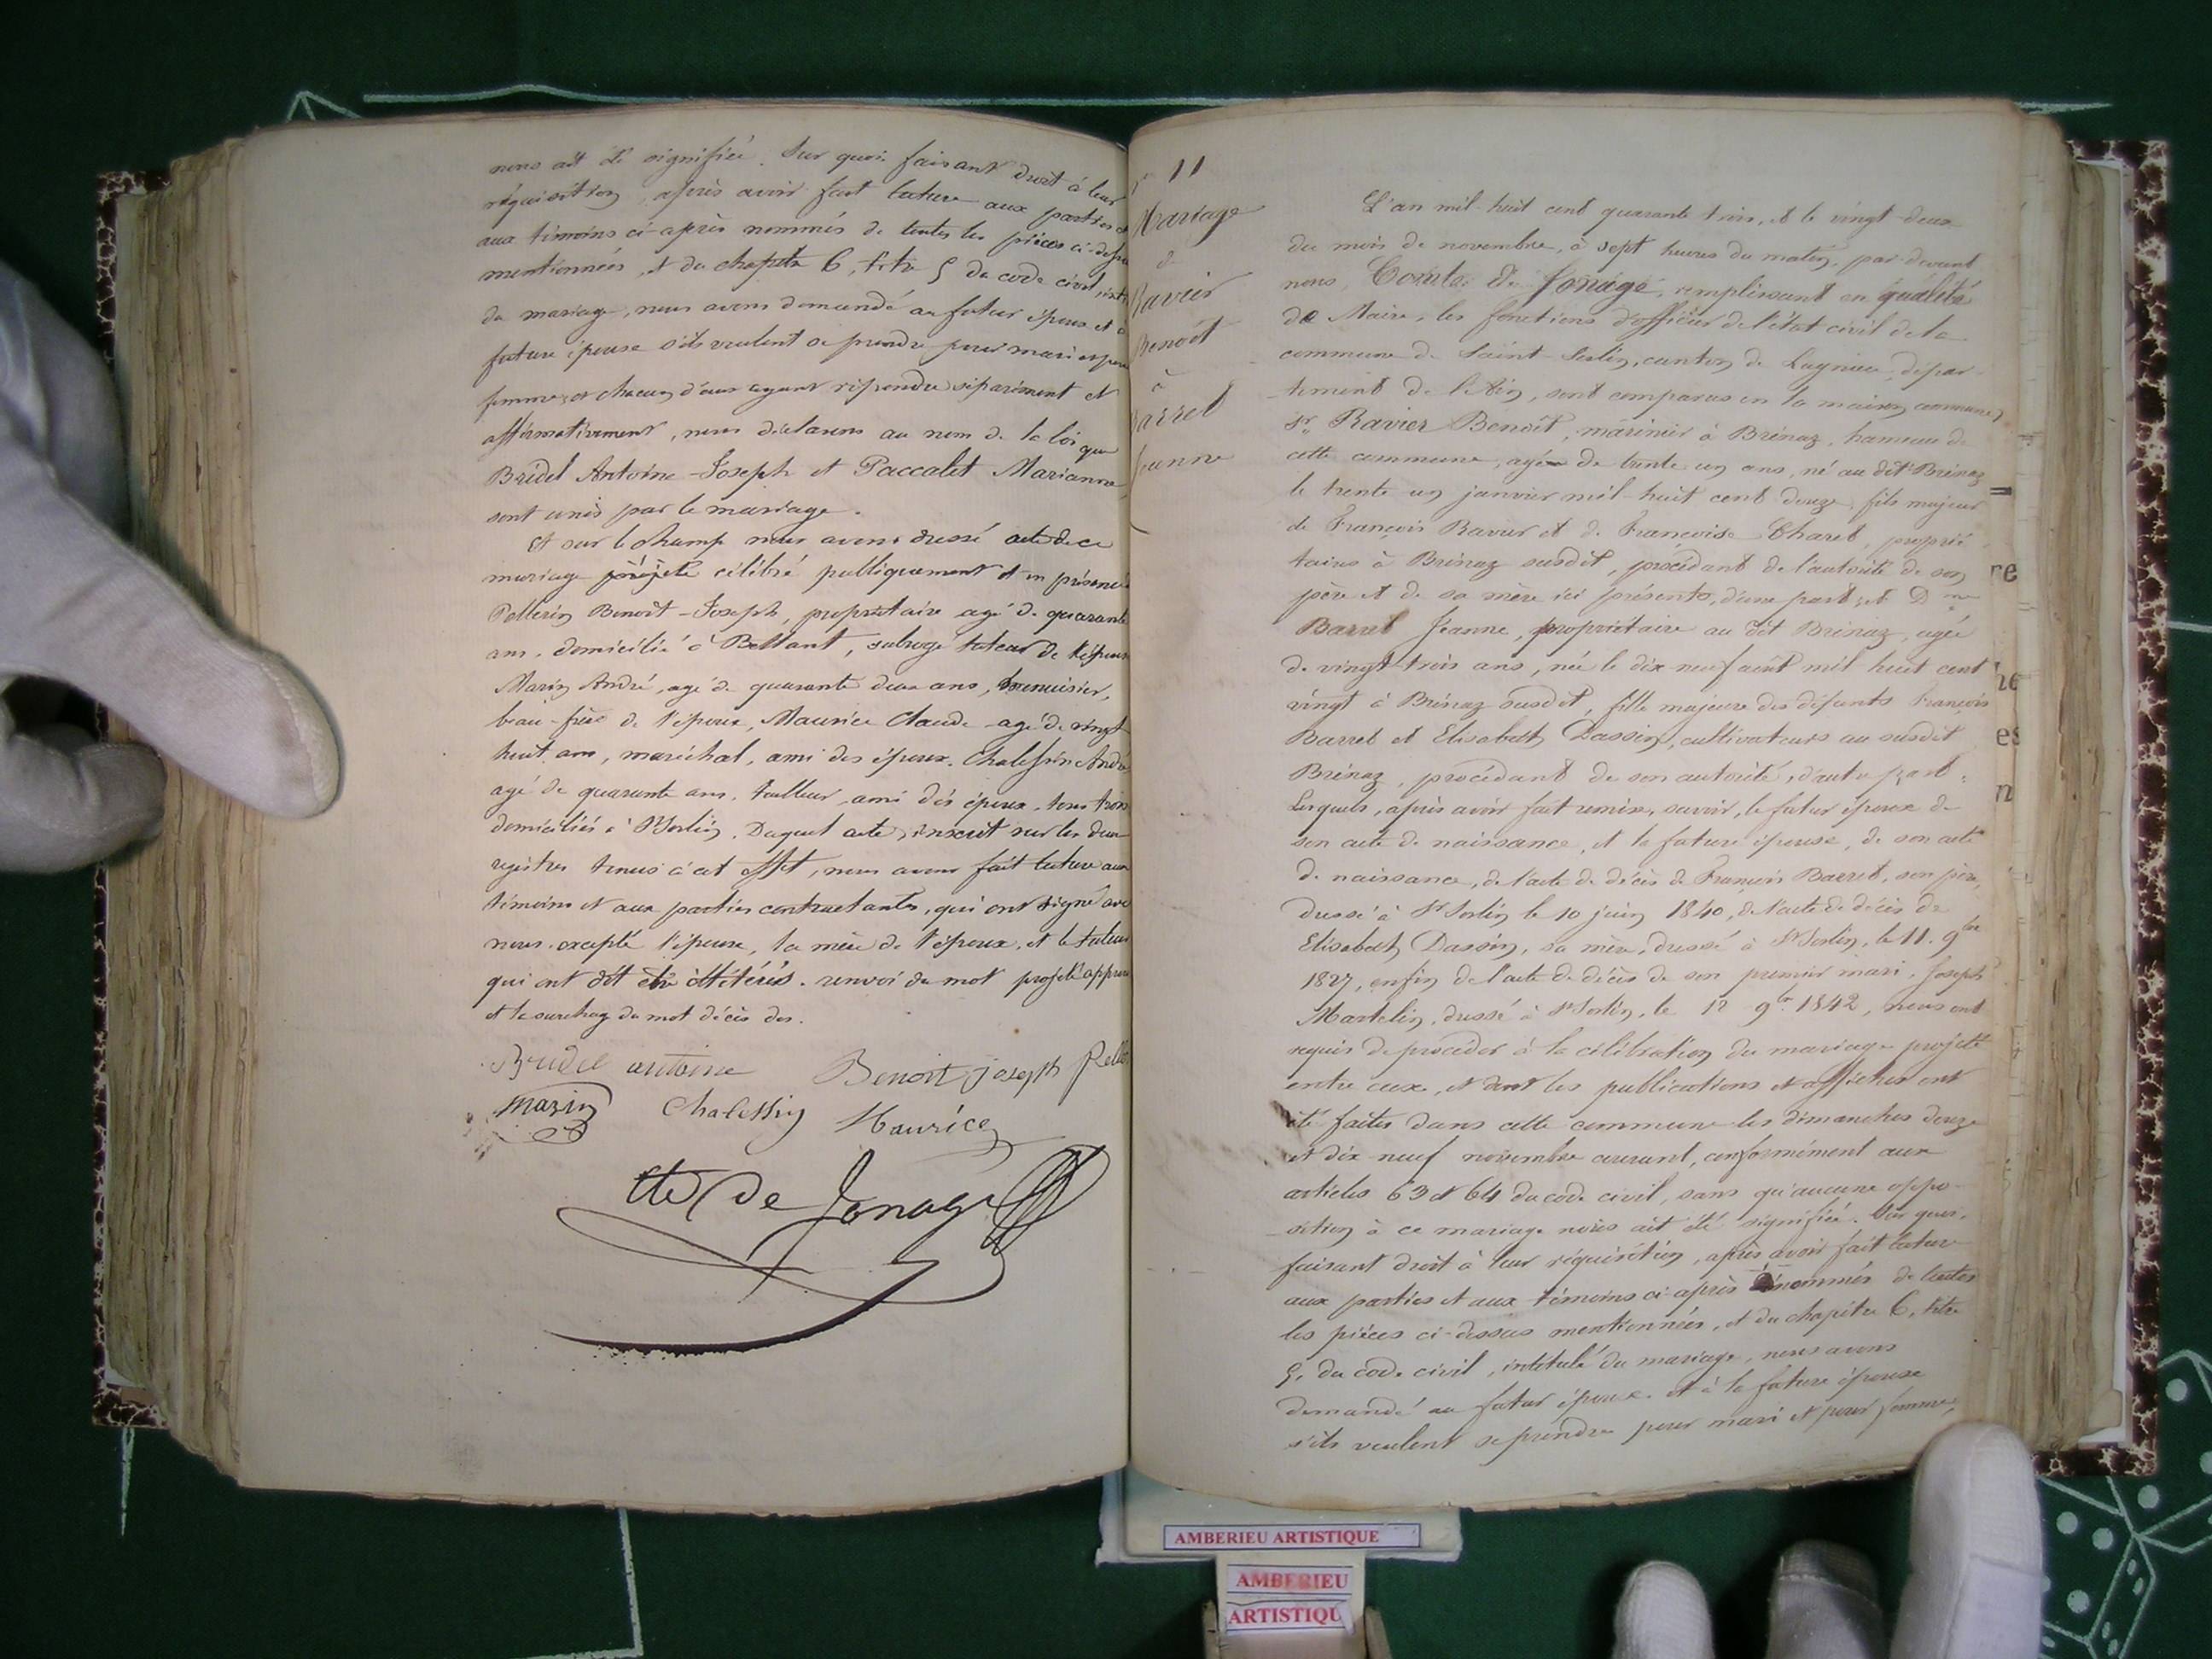 nous ait été signifiée. Sur quoi faisant droit à leur
réquisition, après avoir fait lecture aux parties et
aux témoins ci-après nommés de toutes les pièces ci-dessus
mentionnées, et du chapitre 6, titre 5 du code civil, inti
du mariage, nous avons demandé au futur époux et à
future épouse s'ils veulent se prendre pour mari et pour
femme, et chacun d'eux ayant répondu séparément et
affirmativement, nous déclarons au nom de la loi que
Bridel Antoine-Joseph et Paccalet Marianne
sont unis par le mariage.
Et sur le champ nous avons dressé acte de ce
mariage projeté célébré publiquement et en présence
Pellerin Benoît-Joseph, propriétaire agé de quarante
ans, domicilié à Bettant, subrogé tuteur de l'épouse
Marin André, agé de quarante deux ans, menuisier,
beau-frère de l'époux, Maurice Claude agé de vingt
huit ans, maréchal, ami des époux. Chalessin André
agé de quarante ans, tailleur, ami des époux, tous trois
domiciliés à St Sorlin. Duquel acte, inscrit sur les deux
registres tenus à cet effet, nous avons fait lecture aux
témoins et aux parties contractantes, qui ont signé avec
nous, excepté l'épouse, la mère de l'époux, et le tuteur
qui ont dit être illitérés. renvoi du mot projeté approu
et la surcharg du mot décès des.
Bridel antoine Benoit joseph Pelle
Marin Chalessin Maurice
Cte De Jonage
11
Mariage
de
Ravier
Benoît
à
Barret
Jeanne
L'an mil-huit cent quarante trois, et le vingt-deux
du mois de novembre, à sept heures du matin, par-devant
nous, Comte de Jonage, remplissant en qualité
de Maire, les fonctions d'officier de l'état civil de la
commune de Saint-Sorlin, canton de Lagnieu, dépar-
-tement de l'Ain, sont comparus en la maison commune,
Sr. Ravier Benoît, marinier à Brénaz, hameau de
cette commune, agé de trente un ans, né au dit Brénaz
le trente un janvier mil-huit cent douze, fils majeur
de François Ravier et de Françoise Charet, proprié-
taires à Brénaz susdit, procédant de l'autorité de son
père et de sa mère ici présents, d'une part; et Dme
Barret Jeanne, propriétaire au dit Brénaz, agée
de vingt-trois ans, née le dix-neuf août mil huit cent
vingt à Brénaz susdit, fille majeure des défunts François
Barret et Elisabeth Dassin, cultivateurs au susdit
Brénaz, procédant de son autorité, d'autre part:
Lesquels, après avoir fait remise, savoir, le futur époux de
son acte de naissance, et la future épouse, de son acte
de naissance, de l'acte de décès de François Barret, son père,
dressé à St Sorlin le 10 juin 1840, de l'acte de décès de
Elisabeth Dassin, sa mère, dressé à St Sorlin, le 11. 9bre
1827, enfin de l'acte de décès de son premier mari, Joseph
Martelin, dressé à St Sorlin, le 12 9bre 1842, nous ont
requis de procéder à la célébration du mariage projeté
entre eux, et dont les publications et affiches ont
été faites dans cette commune les dimanches douze
et dix-neuf novembre courant, conformément aux
articles 63 et 64 du code civil, sans qu'aucune oppo-
-sition à ce mariage nous ait été signifiée. Sur quoi,
faisant droit à leur réquisition, après avoir fait lecture
aux parties et aux témoins ci-après nommés de toutes
les pièces ci-dessus mentionnées, et du chapitre 6, titre
5, du code civil, intitulé du mariage, nous avons
demandé au futur époux et à la future épouse
s'ils veulent se prendre pour mari et pour femme,
re
es
n
AMBERIEU ARTISTIQUE
AMBERIEU
ARTISTIQU